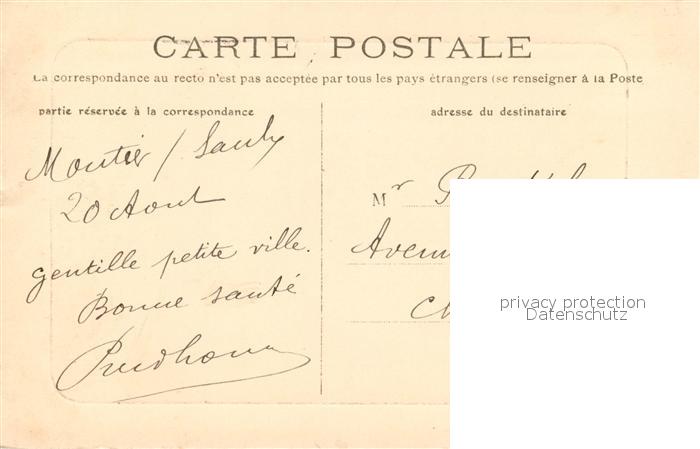 CARTE POSTALE
La correspondance au recto n'est pas acceptée par tous les pays étrangers (se renseigner à la Poste
partie réservée à la correspondance
adresse du destinataire
Montier / Saulx
20 Aout
gentille petite ville.
Bonne santé
Prudhomme
Mr
Avenu
privacy protection
Datenschutz